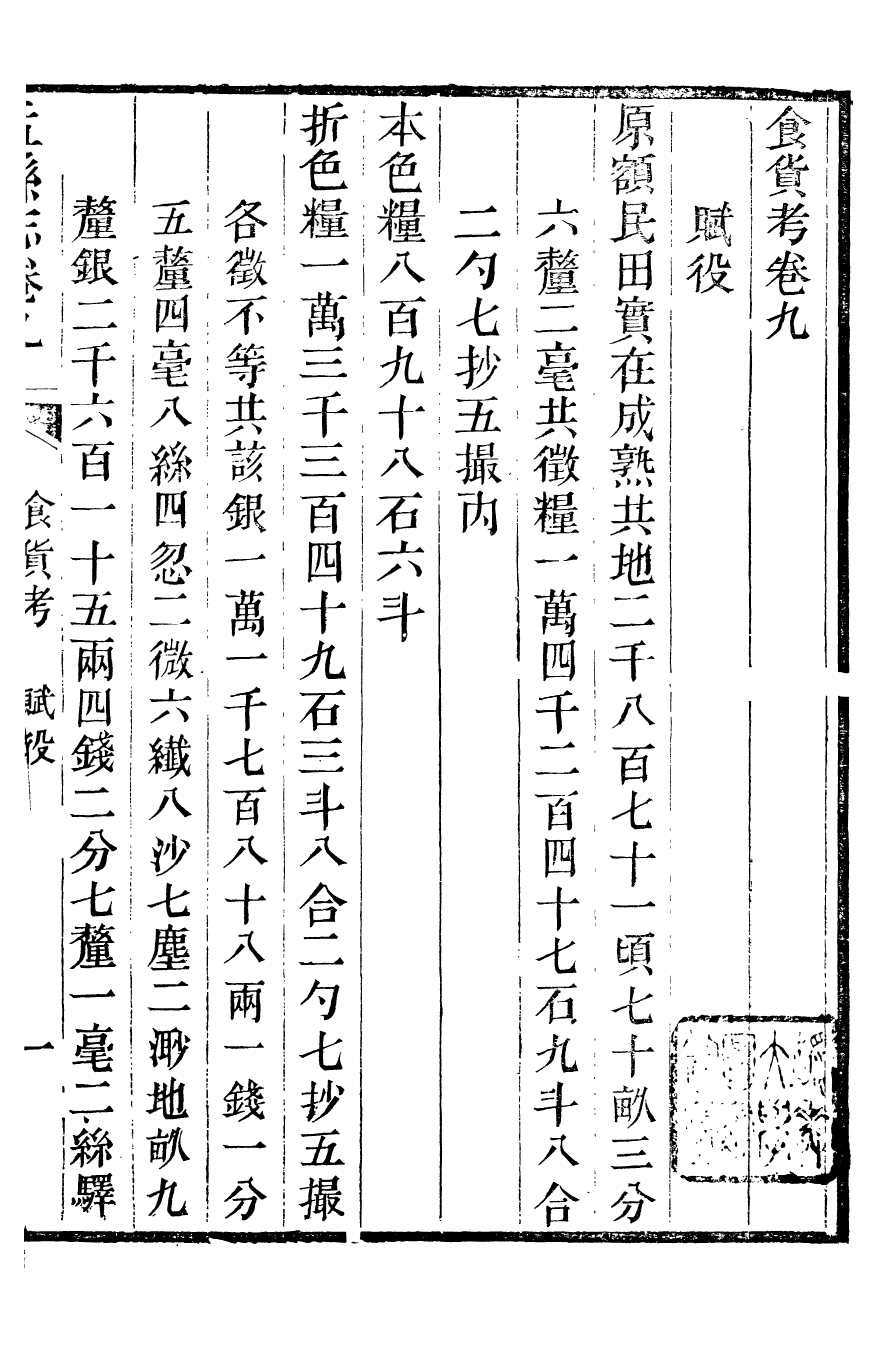 食貨考卷九
賦役
原額民田實在成熟共地二千八百七十一頃七十畝三分
六釐二毫共徵糧一萬四千二百四十七石九斗八合
二勺七抄五撮內
本色糧八百九十八石六斗
折色糧一萬三千三百四十九石三斗八合二勺七抄五撮
各徵不等共該銀一萬一千七百八十八兩一錢一分
五釐四毫八絲四忽二微六纖八沙七塵二渺地畝九
釐銀二千六百一十五兩四錢二分七釐一毫二絲驛
縣志卷九
食貨考
賦役
一